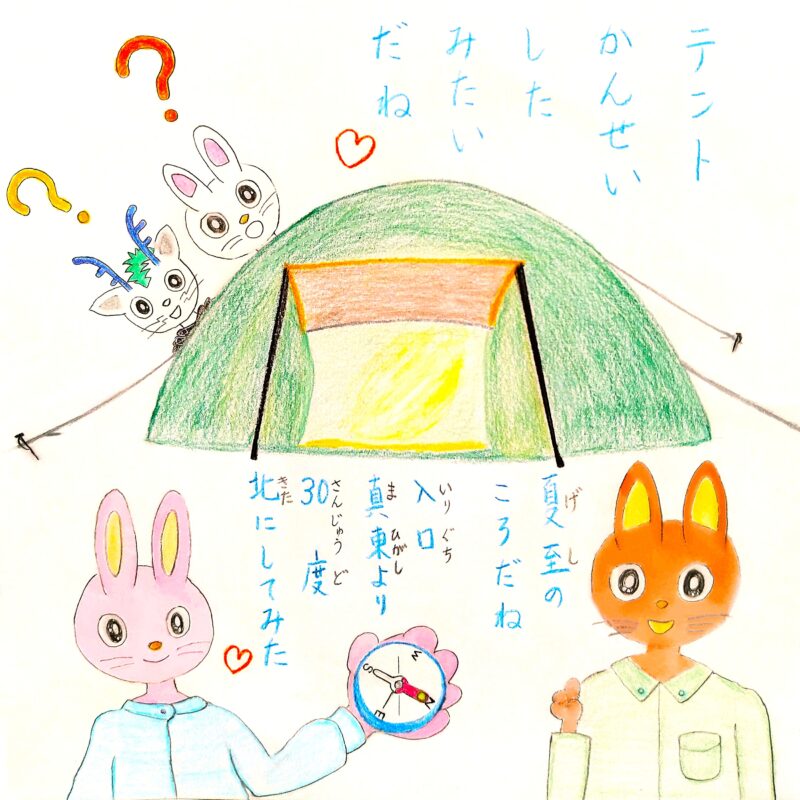 テント
かんせい
した
みたい
だね
夏至の
ころだね
入口
真東より
30度
北にしてみた
げし
いりぐち
まひがし
さんじゅうど
きた
W
S
N
E
?
?